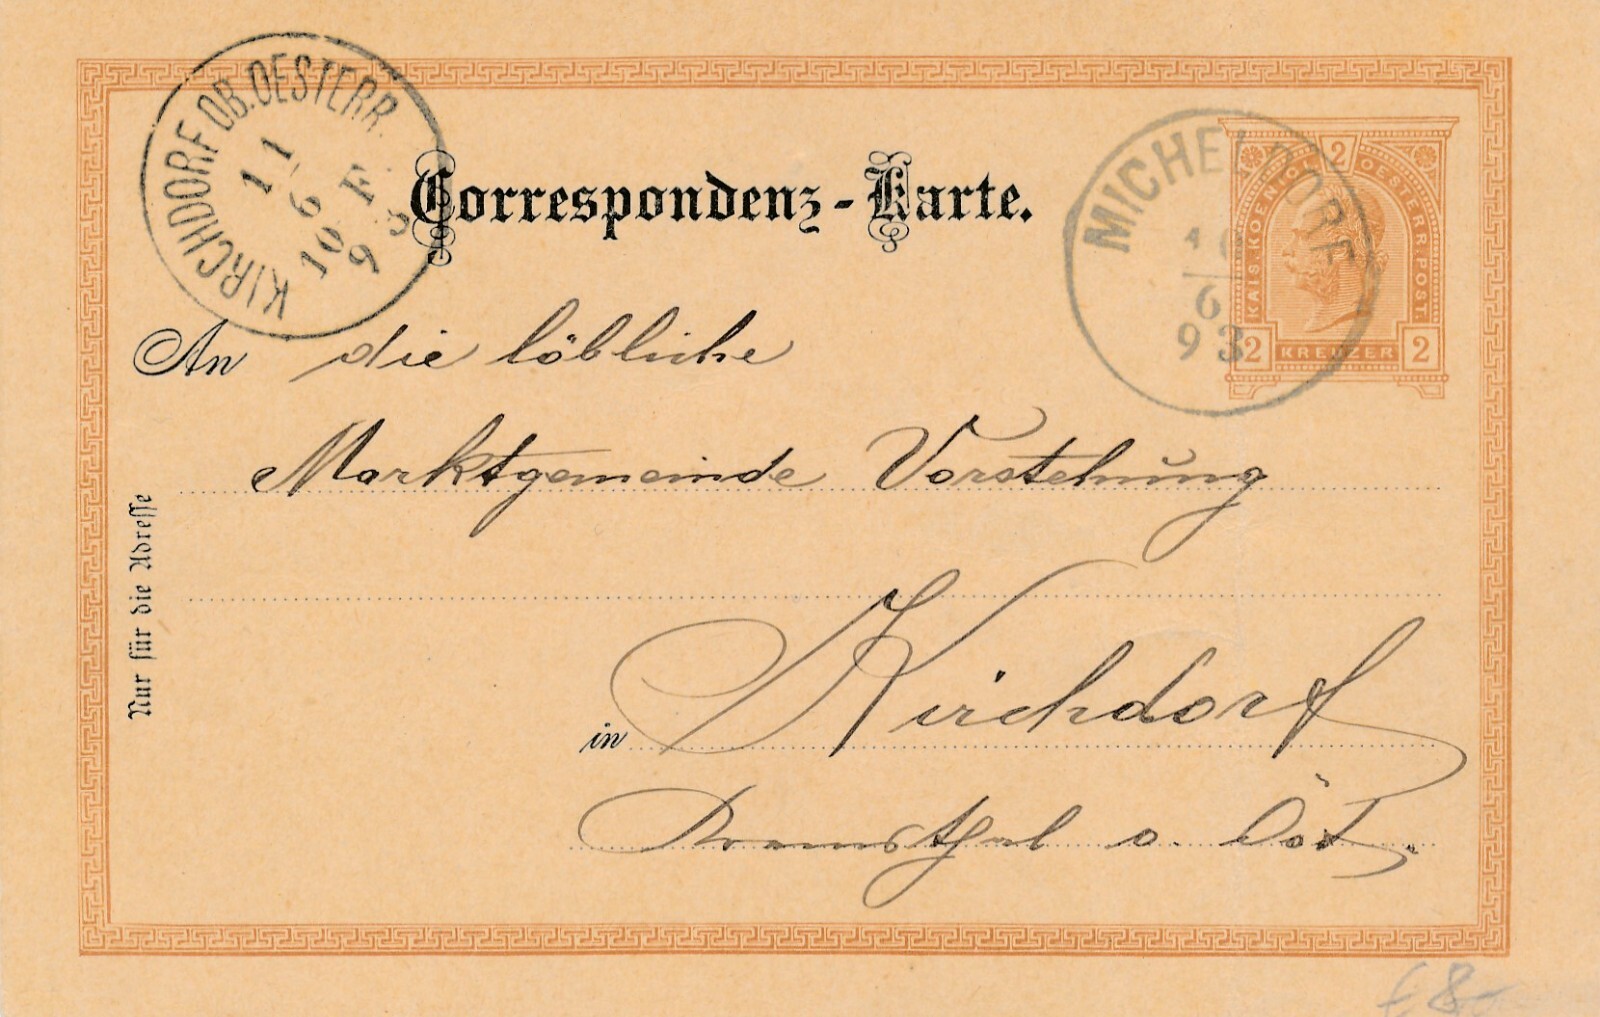 KIRCHDORF OB. OESTERR.
11
6
10 F
9 3
Correspondenz-Karte.
MICHELDORF
10
6
93
2
KAIS. KOENIGL. OESTERR. POST
2 KREUZER 2
An die löbliche
Marktgemeinde Vorstehung
Nur für die Adresse
in Kirchdorf
Kremsthal o. Öst.
€ 8-